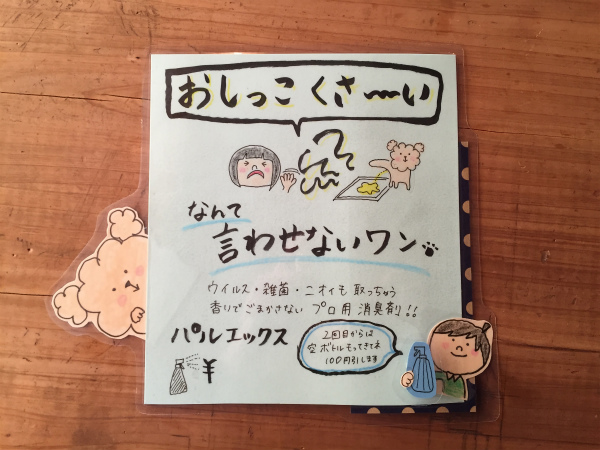 おしっこくさ〜い
なんて
言わせないワン
ウイルス・雑菌・ニオイも 取っちゃう
香りでごまかさない プロ用 消臭剤!!
パルエックス
¥
2回目からは
空ボトルもってきてネ
100円引します